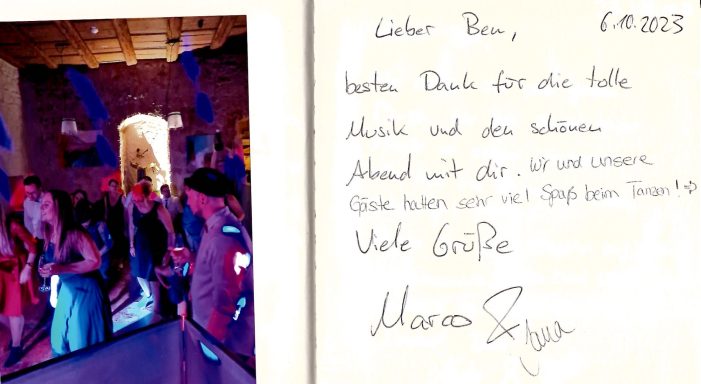 Lieber Ben, 6.10.2023
besten Dank für die tolle
Musik und den schönen
Abend mit dir. Wir und unsere
Gäste hatten sehr viel Spaß beim Tanzen! :)
Viele Grüße
Marco & Jana